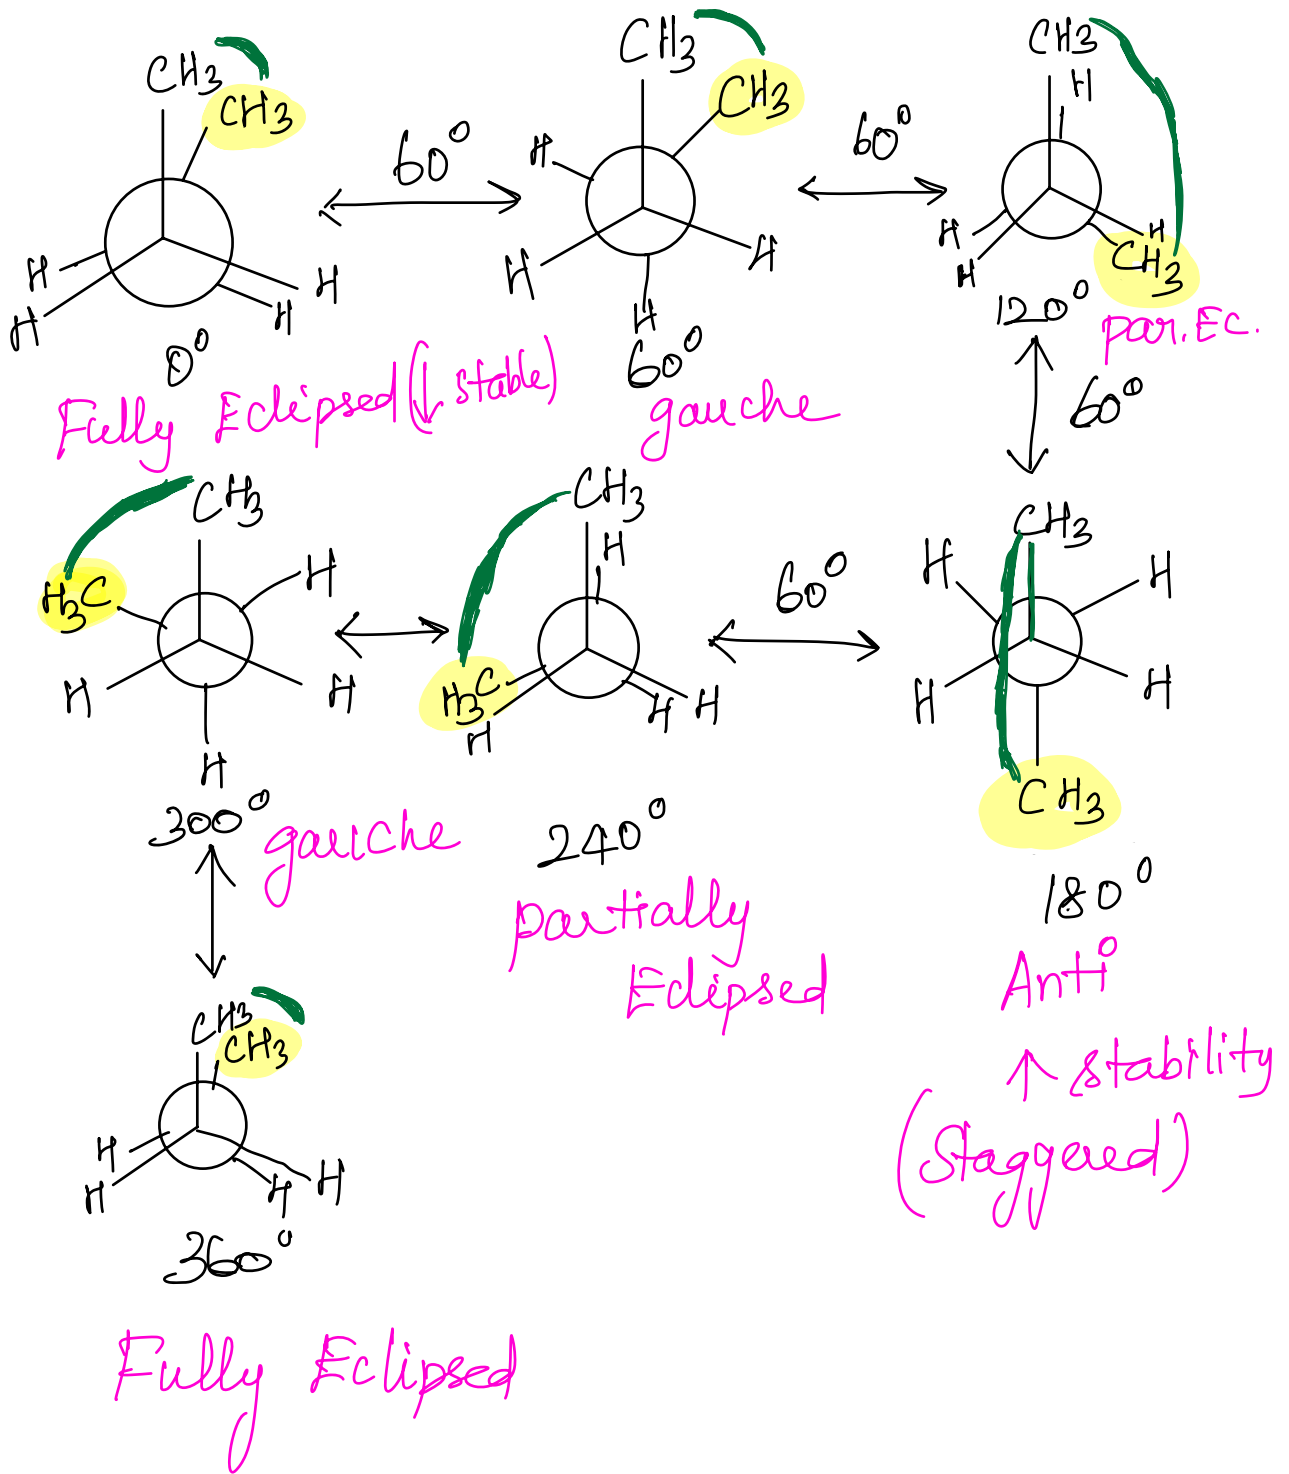 CH3
CH3
H
H
H
H
0°
Fully Eclipsed (↓ stable)
60°
CH3
CH3
H
H
H
H
60°
gauche
60°
CH3
H
H
H
H
CH3
120°
par. Ec.
60°
CH3
H
H
H
H
CH3
180°
Anti
↑ stability
(Staggered)
60°
CH3
H
H3C
H
H
H
240°
partially
Eclipsed
CH3
H3C
H
H
H
H
300°
gauche
CH3
CH3
H
H
H
H
360°
Fully Eclipsed